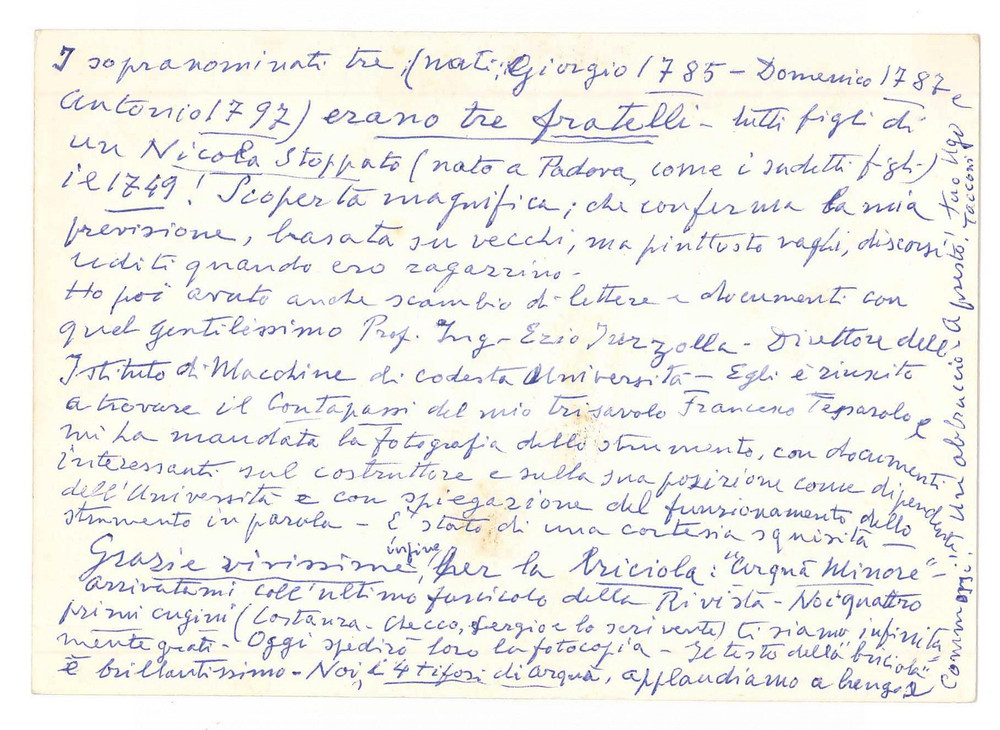 I sopranominati tre (nati: Giorgio 1785 - Domenico 1787 e
Antonio 1797) erano tre fratelli - tutti figli di
un Nicola Stoppato (nato a Padova, come i sudetti figli)
il 1749! Scoperta magnifica; che conferma la mia
previsione, basata su vecchi, ma piuttosto vaghi, discorsi
uditi quando ero ragazzino -
Ho poi avuto anche scambio di lettere e documenti con
quel gentilissimo Prof. Ing. Ezio - Direttore dell'
Istituto di Macchine di codesta Università - Egli è riuscito
a trovare il Contapassi del mio trisavolo Francesco Tessarolo e
mi ha mandata la fotografia dello strumento, con documenti
interessanti sul costruttore e sulla sua posizione come dipendente
dell'Università e con spiegazione del funzionamento dello
strumento in parola - E' stato di una cortesia squisita -
Grazie vivissime infine, per la briciola: "Arquà Minore" -
arrivatami coll'ultimo fascicolo della Rivista - Noi quattro
primi cugini (Costanza - Checco, Sergio e lo scrivente) ti siamo infinita=
mente grati - Oggi spedirò loro la fotocopia - Il testo della "briciola"
è brillantissimo - Noi, i 4 tifosi di Arquà, applaudiamo a lungo e
commossi! Un abbraccio - A presto! tuo Ugo
Tacconi